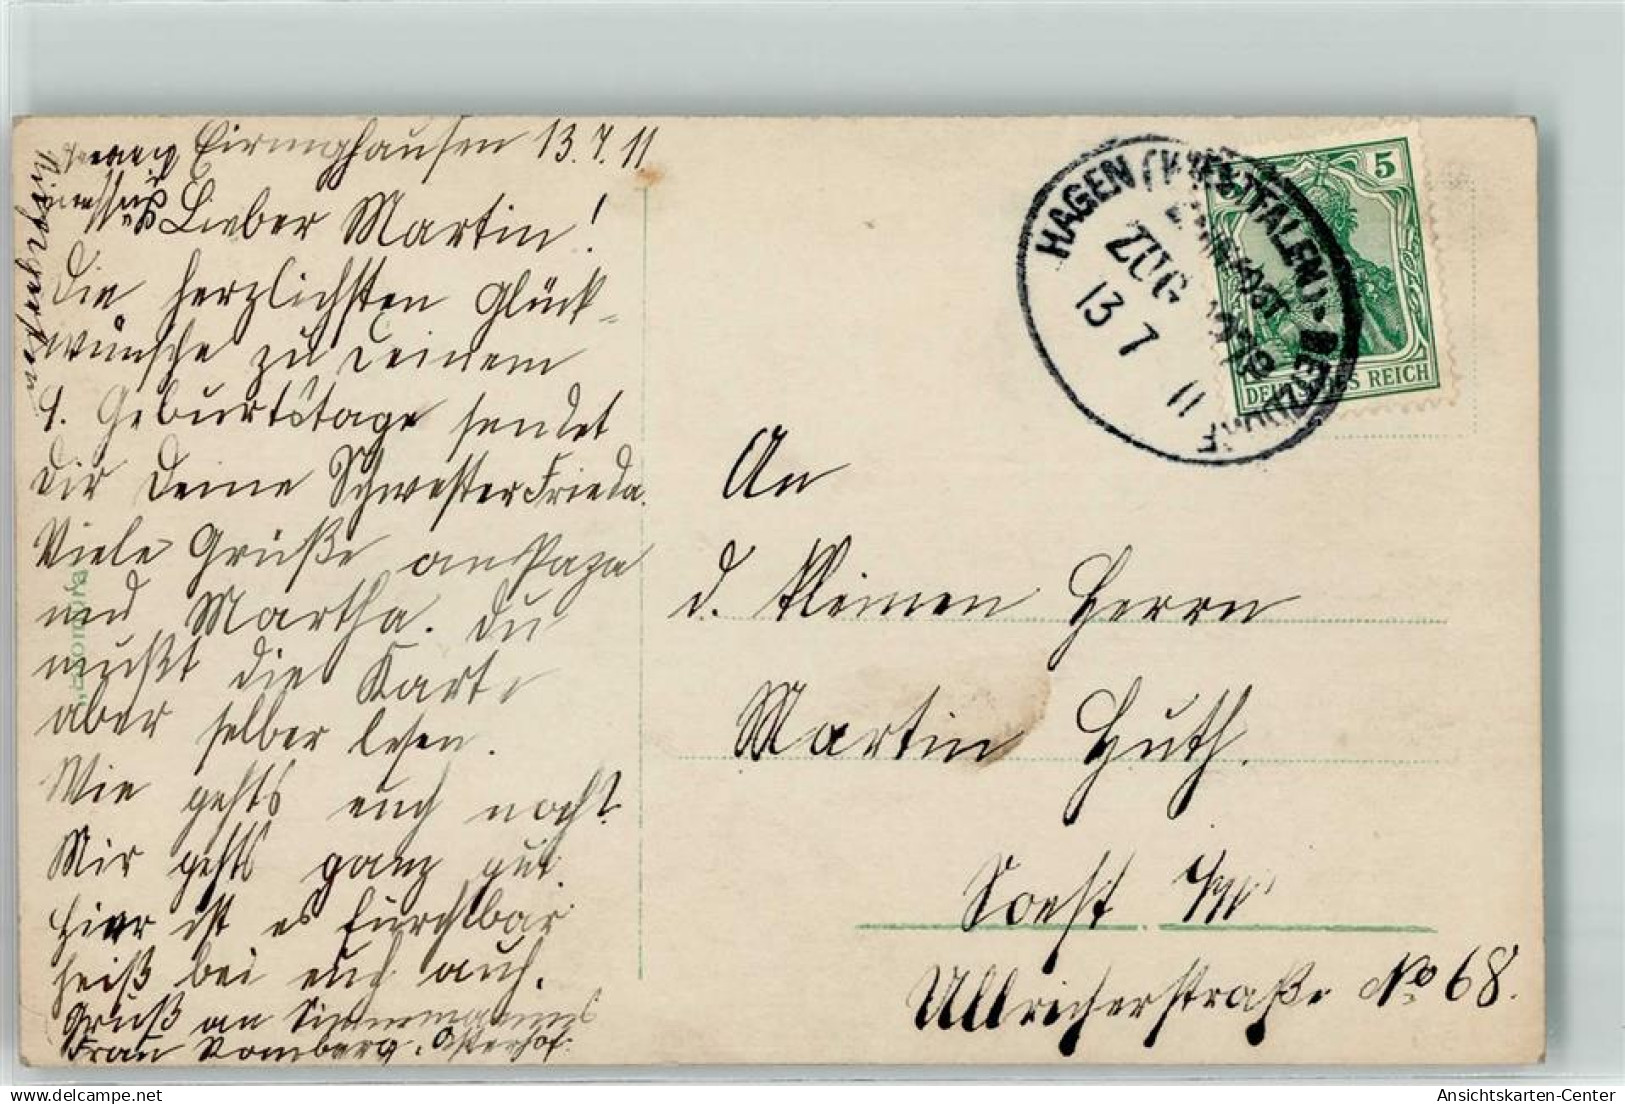 Eiringhausen 13.7.11
Lieber Martin!
Die herzlichsten Glück-
wünsche zu Deinem
9. Geburtstage sendet
dir Deine Schwester Frieda.
Viele Grüße an Papa
und Martha. Du
mußt die Karte
aber selber lesen.
Wie gehts euch noch?
Mir gehts ganz gut.
Hier ist es furchtbar
heiß bei euch auch.
Gruß an
Frau Romberg. Osterhof.
HAGEN (WESTFALEN) - BETZDORF
BAHNPOST
ZUG
13 7 11
5
DEUTSCHES REICH
An
d. kleinen Herrn
Martin Huth.
Soest i/W
Ullricherstraße No 68.
www.ansichtskartenversand.com
Ansichtskarten-Center